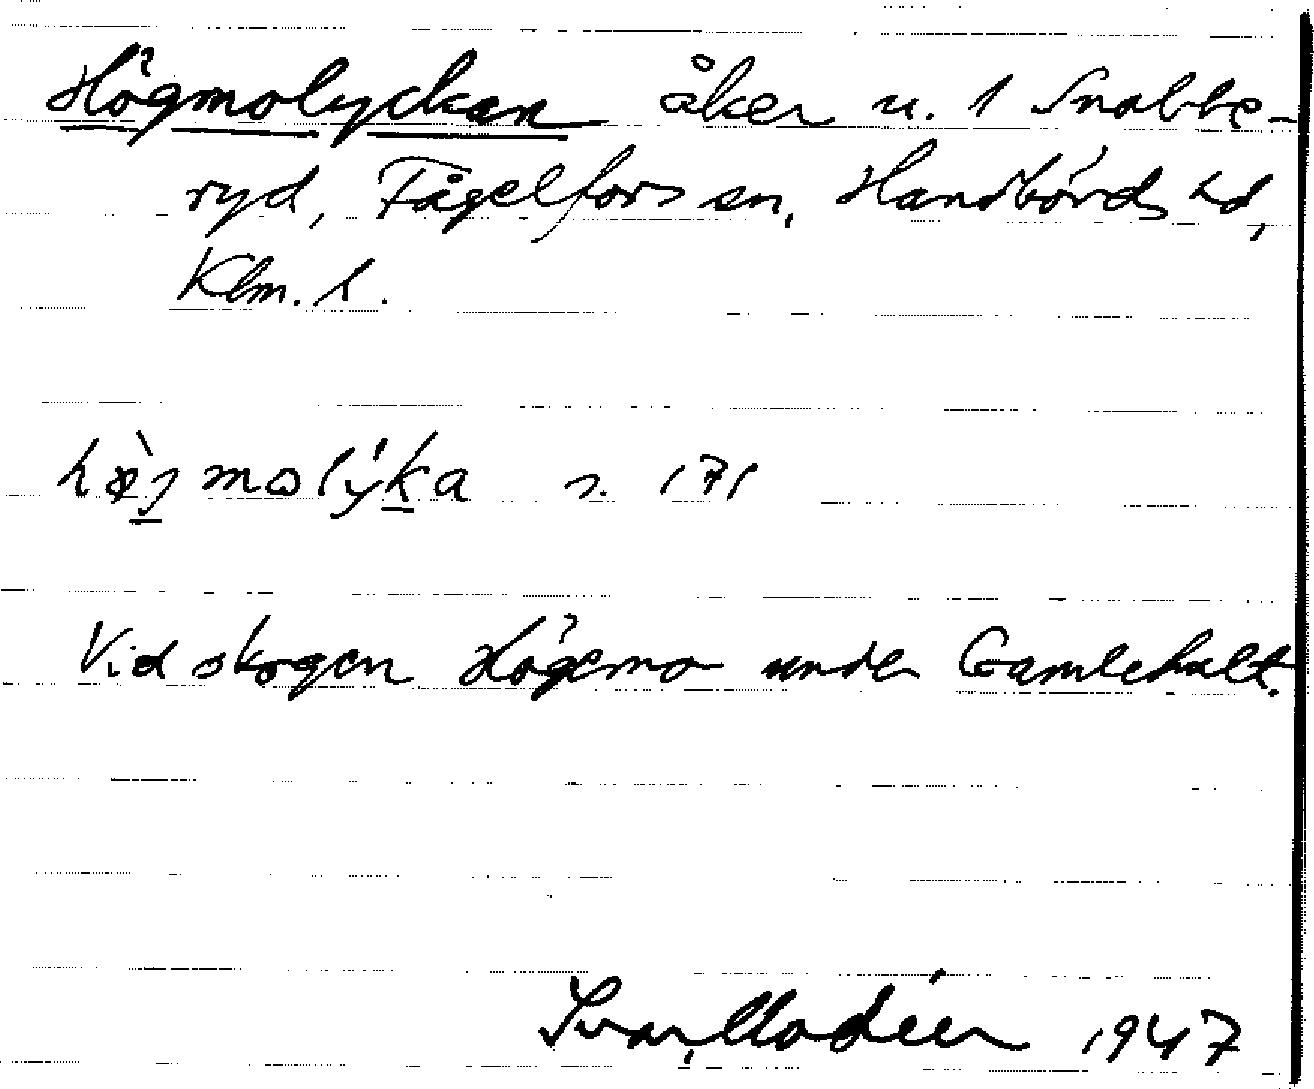 Högmolyckan åker u. 1 Snabbe-
ryd, Fågelfors sn, Handbörds hd,
Klm. l.
hø̀jmolýka s. 171
Vid skogen Högemo under Gamlehult.
Ivar Modéer 1947